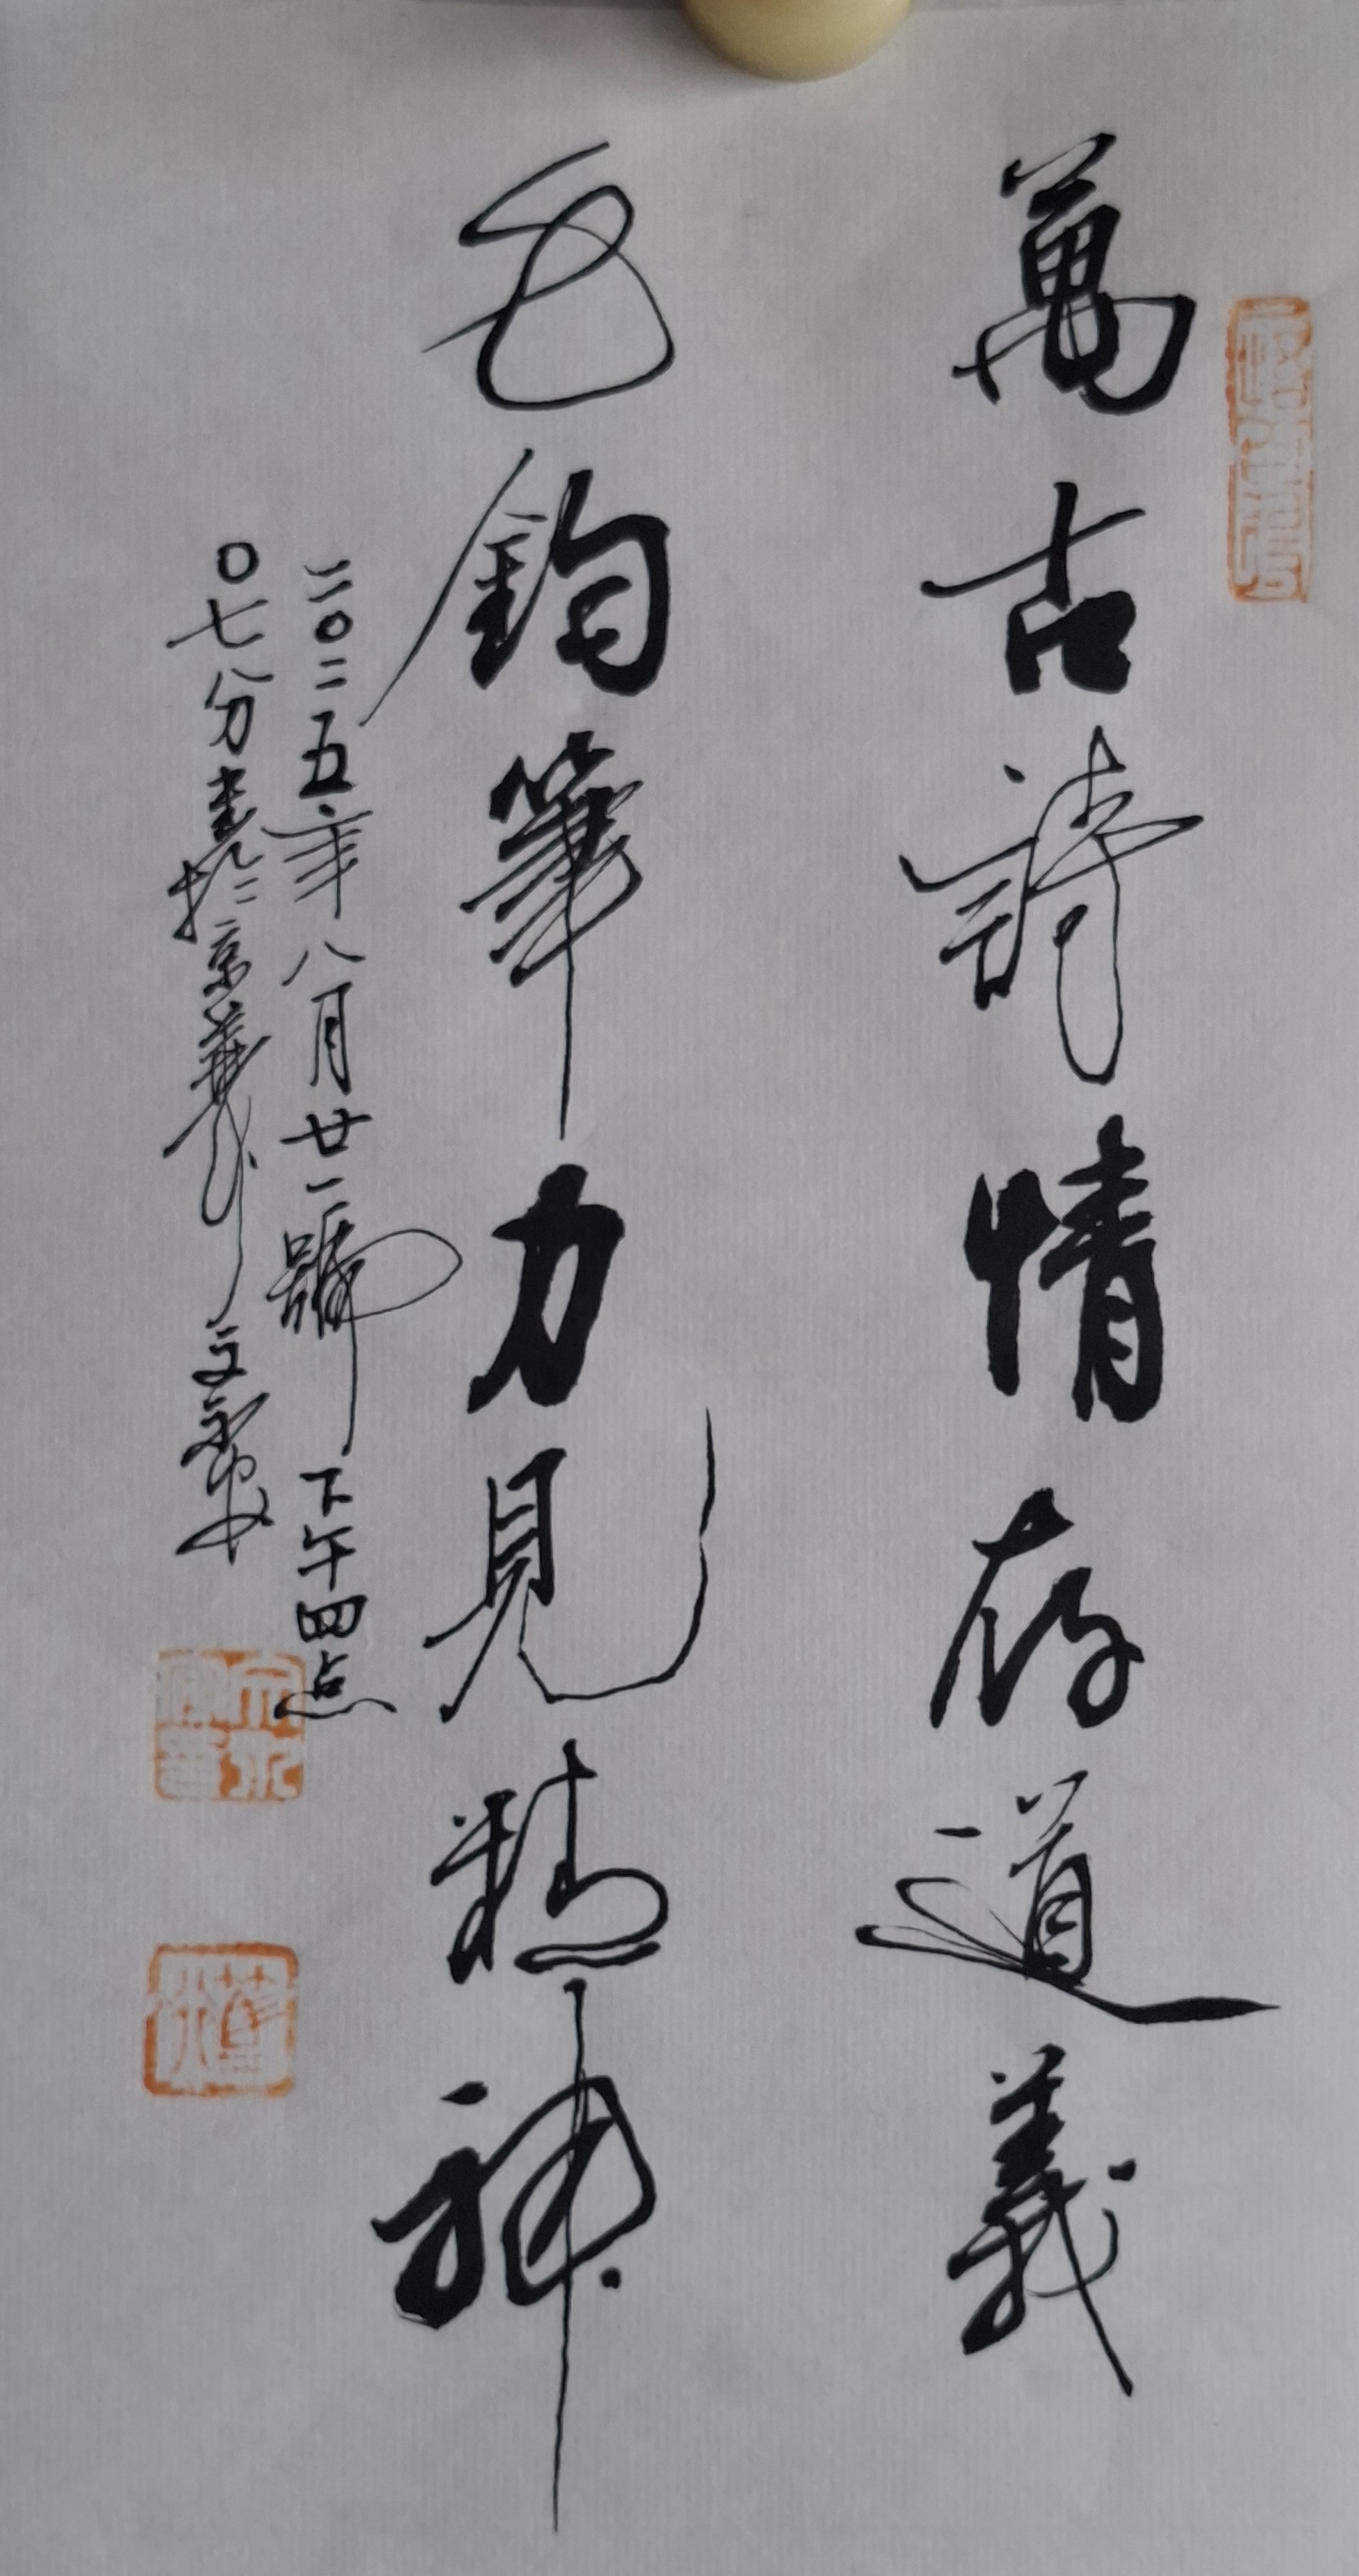 萬古詩情存道義
鈞筆力見精神
二〇二五年八月廿二號下午四点
〇七分書於京